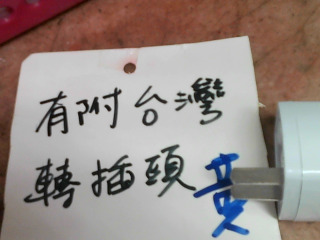 有附台灣
轉插頭黃